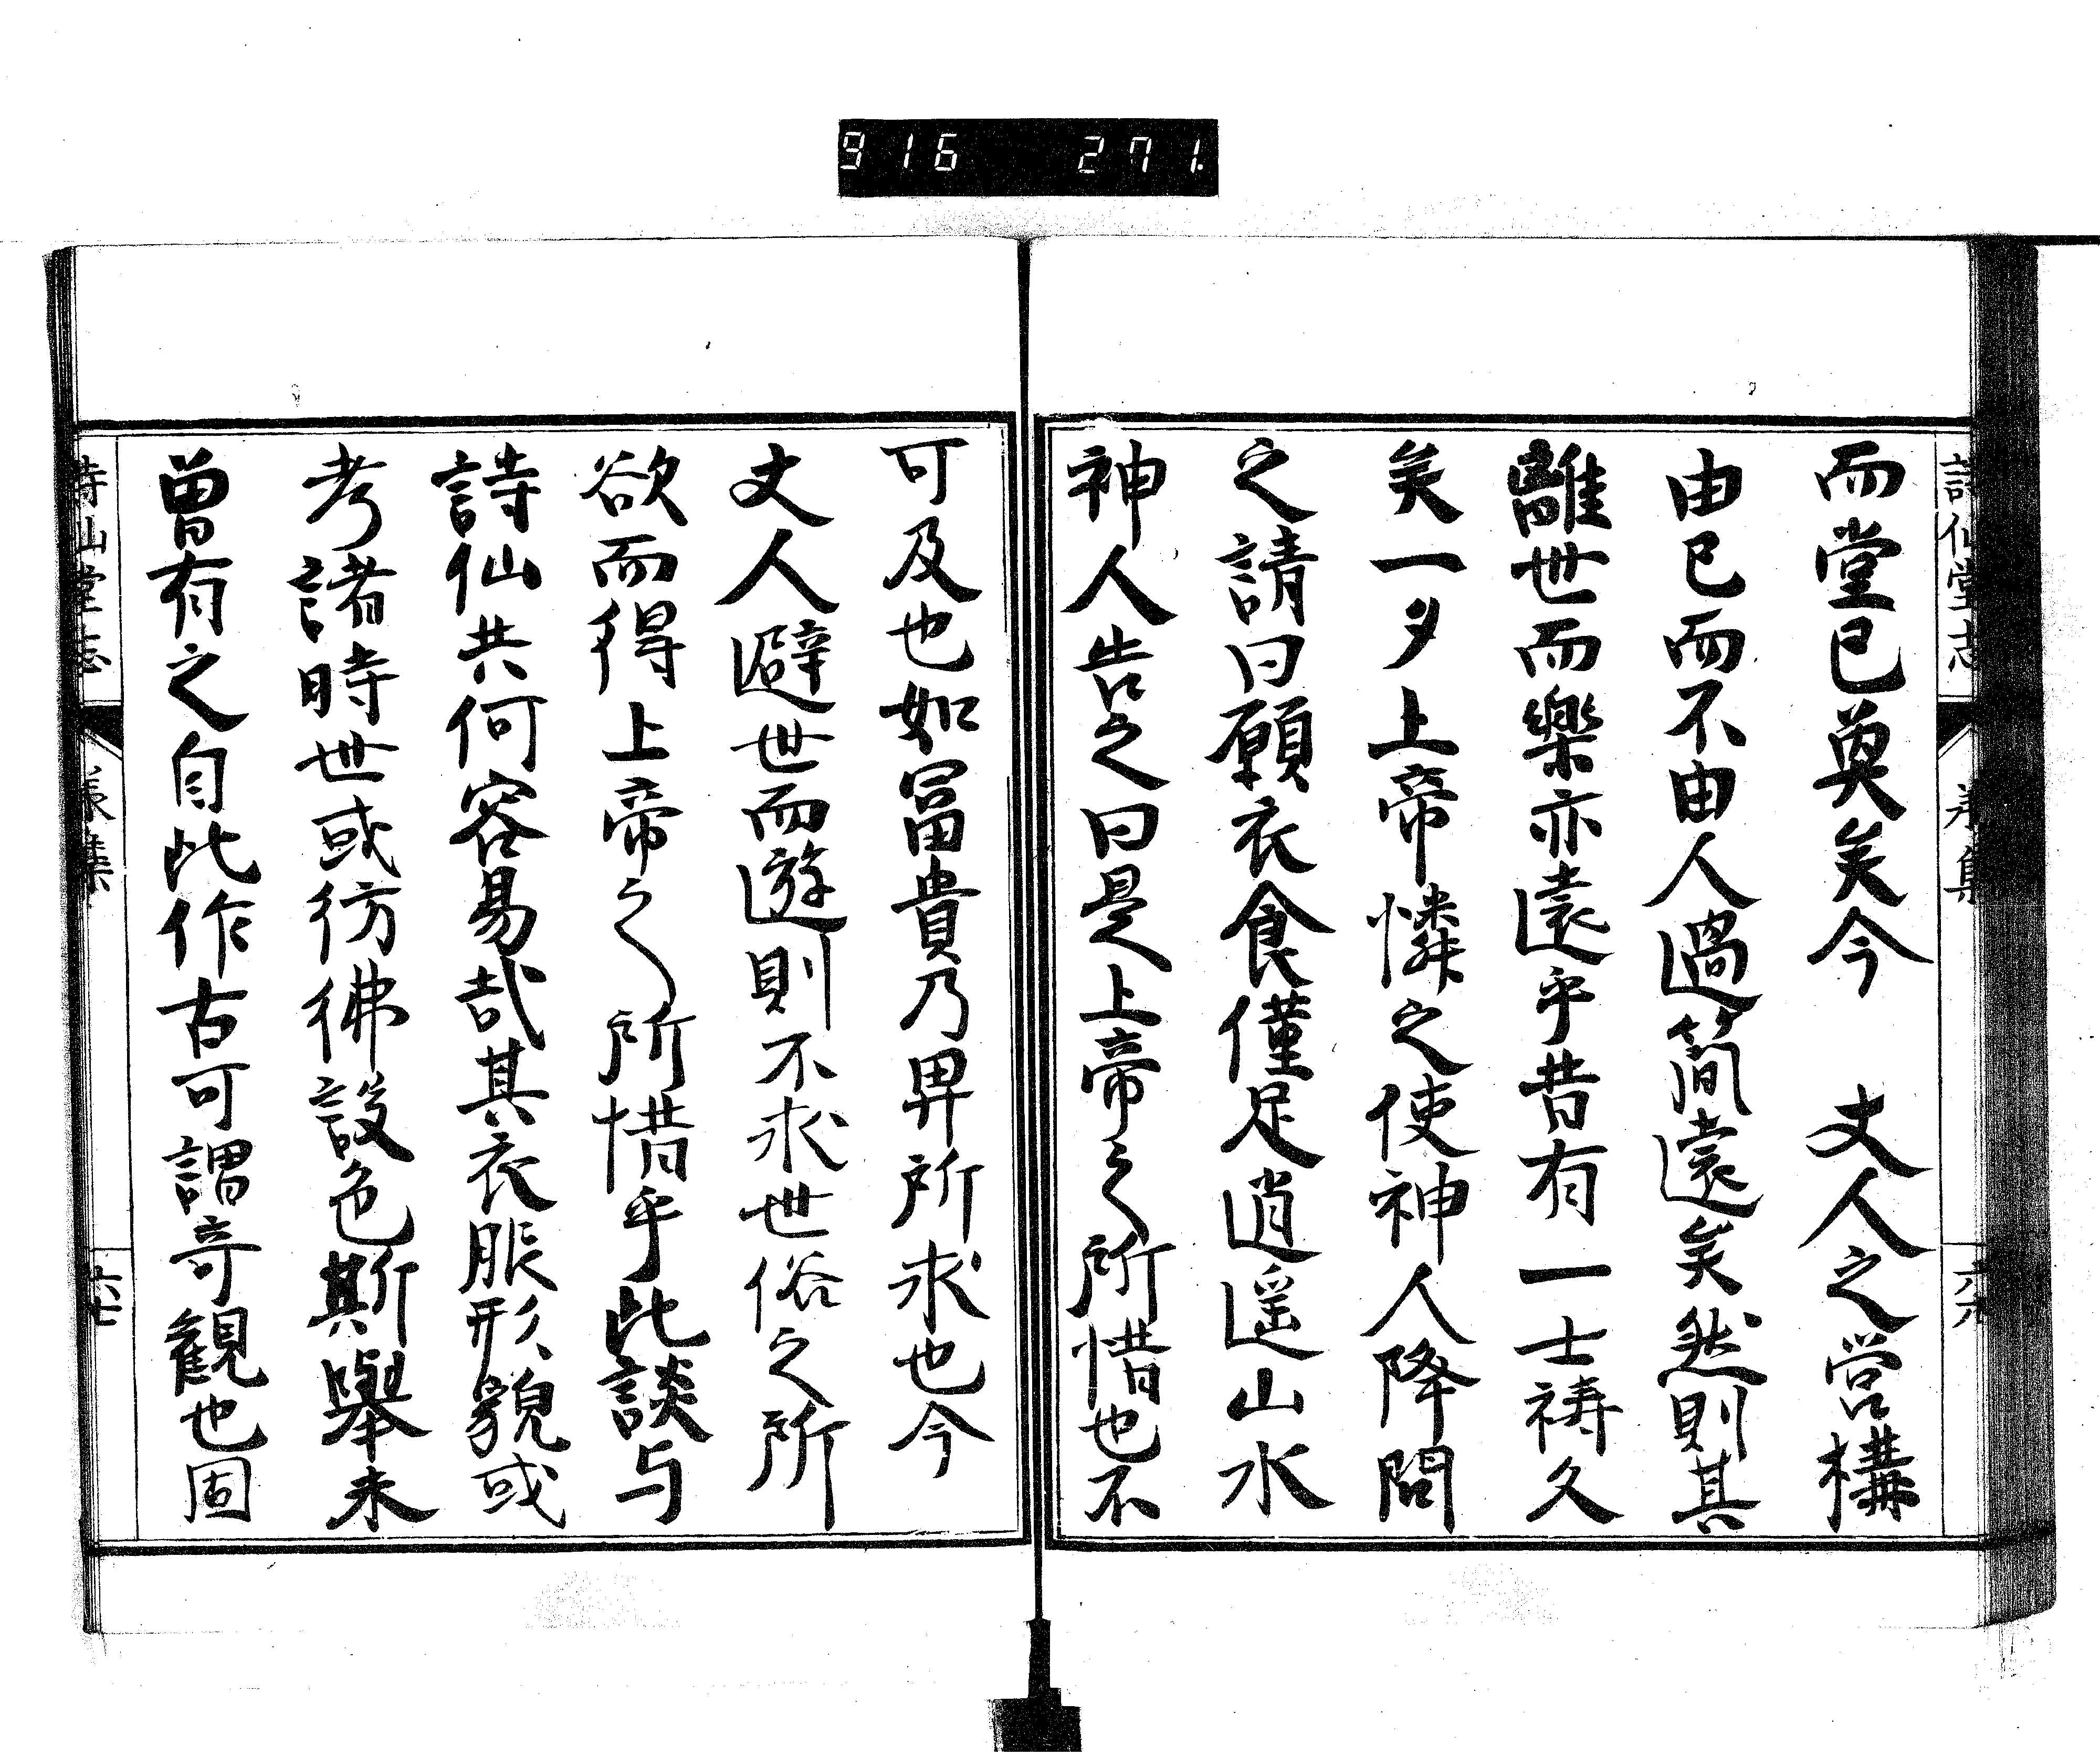 916 271
詩仙堂志
而堂已奐矣今　丈人之営構
由已而不由人過簡遠矣然則其
離世而樂亦遠乎昔有一士祷久
矣一夕上帝憐之使神人降問
之請曰願衣食僅足逍遥山水
神人告之曰是上帝之所惜也不
可及也如冨貴乃畀所求也今
丈人避世而遊則不求世俗之所
欲而得上帝之所惜乎此談与
詩仙共何容易哉其衣服形貌或
考諸時世或彷彿設色斯舉未
曽有之自此作古可謂奇觀也固
詩仙堂志